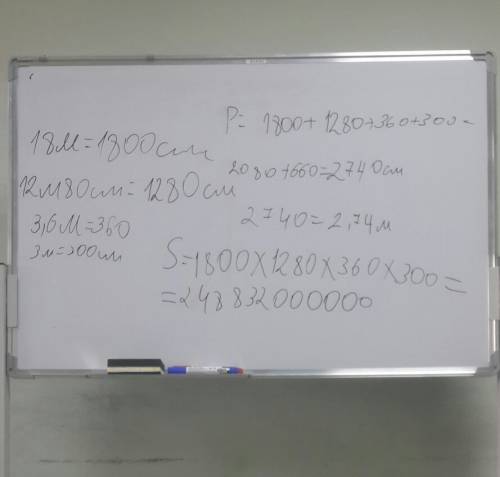 18м=1800см
12м80см=1280см
3,6м=360
3м=300см
P= 1800+1280+360+300=
2080+660=2740см
2740=2,74м
S=1800×1280×360×300=
=248832000000